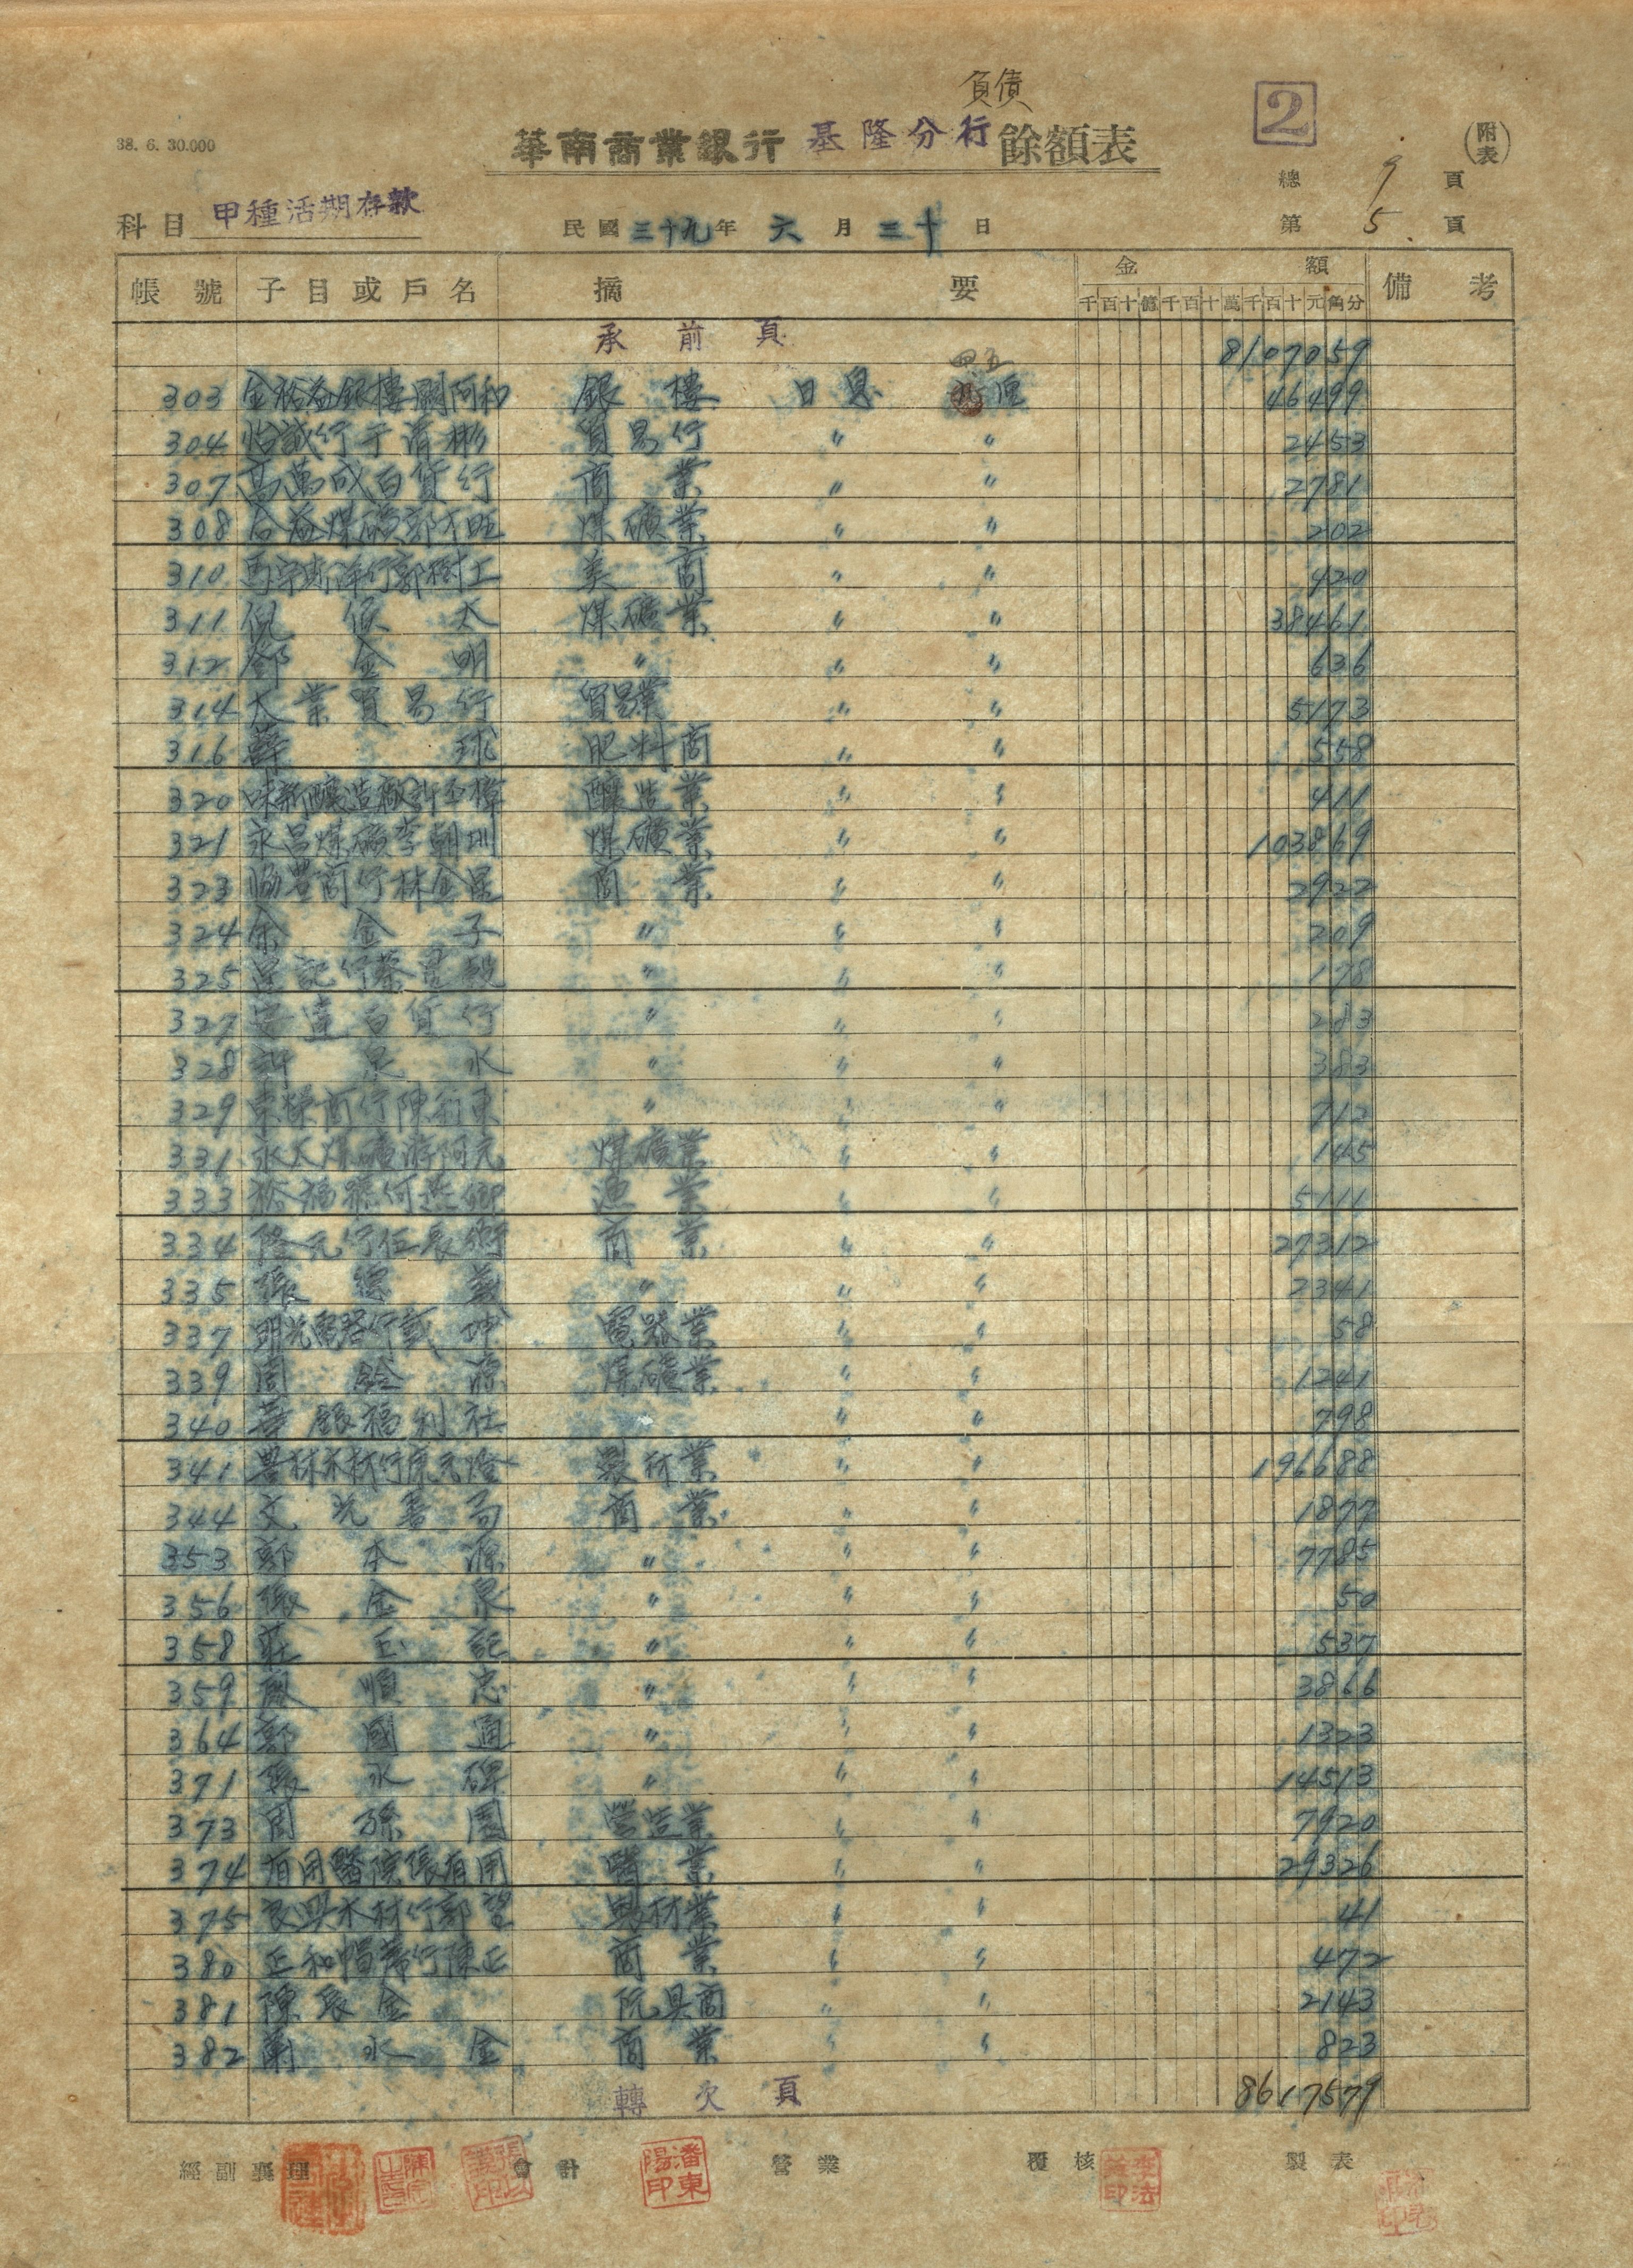 負債
38. 6. 30.000
華南商業銀行 基隆分行 餘額表
2
(附表)
總 9 頁
科目 甲種活期存款
民國三十九年 六月 三十日
第 5 頁
帳號 子目或戶名 摘要 金額 備考
千百十億千百十萬千百十元角分
承前頁 8107059
四五
303 金裕益銀樓 阿和 銀樓 日息 厘 46499
304 怡誠行于清彬 貿易行 〃 〃 2453
307 高萬成百貨行 商業 〃 〃 2781
308 合益煤礦郭水旺 煤礦業 〃 〃 202
310 洋行郭樹工 美商 〃 〃 420
311 倪侯太 煤礦業 〃 〃 38461
312 鄧金明 〃 〃 〃 636
314 大業貿易行 貿易業 〃 〃 5173
316 薛球 肥料商 〃 〃 558
320 味新釀造廠許丕樟 釀造業 〃 〃 411
321 永昌煤礦李朝圳 煤礦業 〃 〃 103869
323 豐商行林金星 商業 〃 〃 2922
324 余金子 〃 〃 〃 209
325 記行蔡 〃 〃 〃 178
327 安達百貨行 〃 〃 〃 283
328 許泉水 〃 〃 〃 383
329 東榮商行陳 東 〃 〃 〃 712
331 永大煤礦游阿元 煤礦業 〃 〃 145
333 裕福 何燕卿 漁業 〃 〃 5111
334 隆元行伍長 商業 〃 〃 27312
335 張德義 〃 〃 〃 2341
337 明光電器行戴坤 電器業 〃 〃 58
339 周 源 煤礦業 〃 〃 1241
340 華銀福利社 〃 〃 798
341 豐林木材行康元燈 製材業 〃 〃 196688
344 文光書局 商業 〃 〃 1877
353 郭本源 〃 〃 〃 7785
356 張金泉 〃 〃 〃 50
358 莊玉記 〃 〃 〃 537
359 順忠 〃 〃 〃 3866
364 郭國通 〃 〃 〃 1323
371 張水碑 〃 〃 〃 14513
373 周孫園 營造業 〃 〃 7920
374 有用醫院張有用 醫業 〃 〃 29326
375 良興木材行郭望 製材業 〃 〃 41
380 正和帽蓆行陳正 商業 〃 〃 472
381 陳辰金 玩具商 〃 〃 2143
382 蘭水金 商業 〃 〃 823
轉次頁 8617579
經副襄理 會計 潘東陽印 營業 覆核 製表